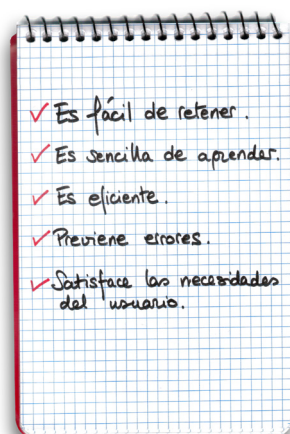 Es fácil de retener.
Es sencilla de aprender.
Es eficiente.
Previene errores.
Satisface las necesidades
del usuario.